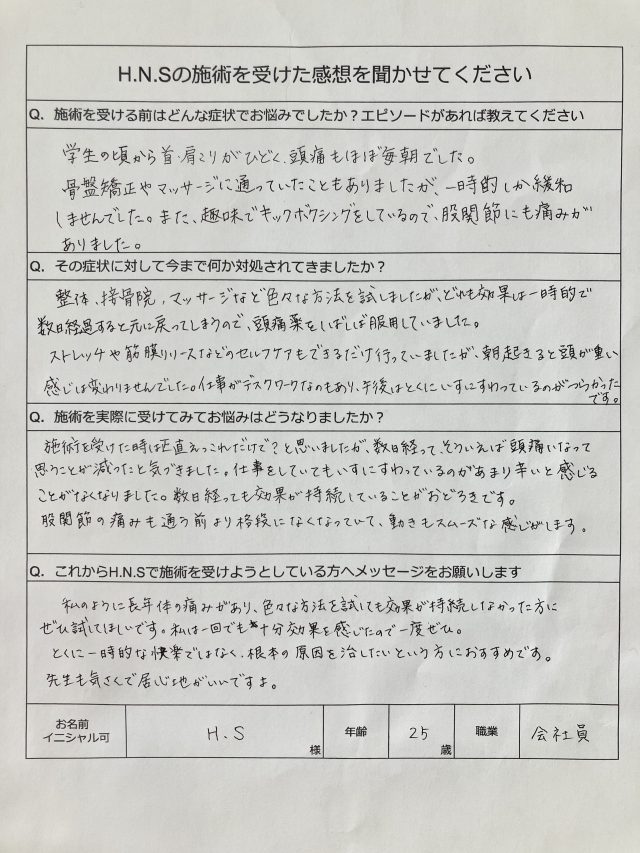 H.N.Sの施術を受けた感想を聞かせてください
Q. 施術を受ける前はどんな症状でお悩みでしたか？エピソードがあれば教えてください
学生の頃から首・肩こりがひどく、頭痛もほぼ毎朝でした。
骨盤矯正やマッサージに通っていたこともありましたが、一時的しか緩和
しませんでした。また、趣味でキックボクシングをしているので、股関節にも痛みが
ありました。
Q. その症状に対して今まで何か対処されてきましたか？
整体、接骨院、マッサージなど色々な方法を試しましたが、どれも効果は一時的で
数日経過すると元に戻ってしまうので、頭痛薬をしばしば服用していました。
ストレッチや筋膜リリースなどのセルフケアもできるだけ行っていましたが、朝起きると頭が重い
感じは変わりませんでした。仕事がデスクワークなのもあり、午後はとくにいすにすわっているのがつらかった
です。
Q. 施術を実際に受けてみてお悩みはどうなりましたか？
施術を受けた時は正直えっこれだけで？と思いましたが、数日経って、そういえば頭痛いなって
思うことが減ったと気づきました。仕事をしていてもいすにすわっているのがあまり辛いと感じる
ことがなくなりました。数日経っても効果が持続していることがおどろきです。
股関節の痛みも通う前より格段になくなっていて、動きもスムーズな感じがします。
Q. これからH.N.Sで施術を受けようとしている方へメッセージをお願いします
私のように長年体の痛みがあり、色々な方法を試しても効果が持続しなかった方に
ぜひ試してほしいです。私は一回でも十分効果を感じたので一度ぜひ。
とくに一時的な快楽ではなく、根本の原因を治したいという方におすすめです。
先生も気さくで居心地がいいですよ。
お名前
イニシャル可
H.S
様
年齢
25
歳
職業
会社員